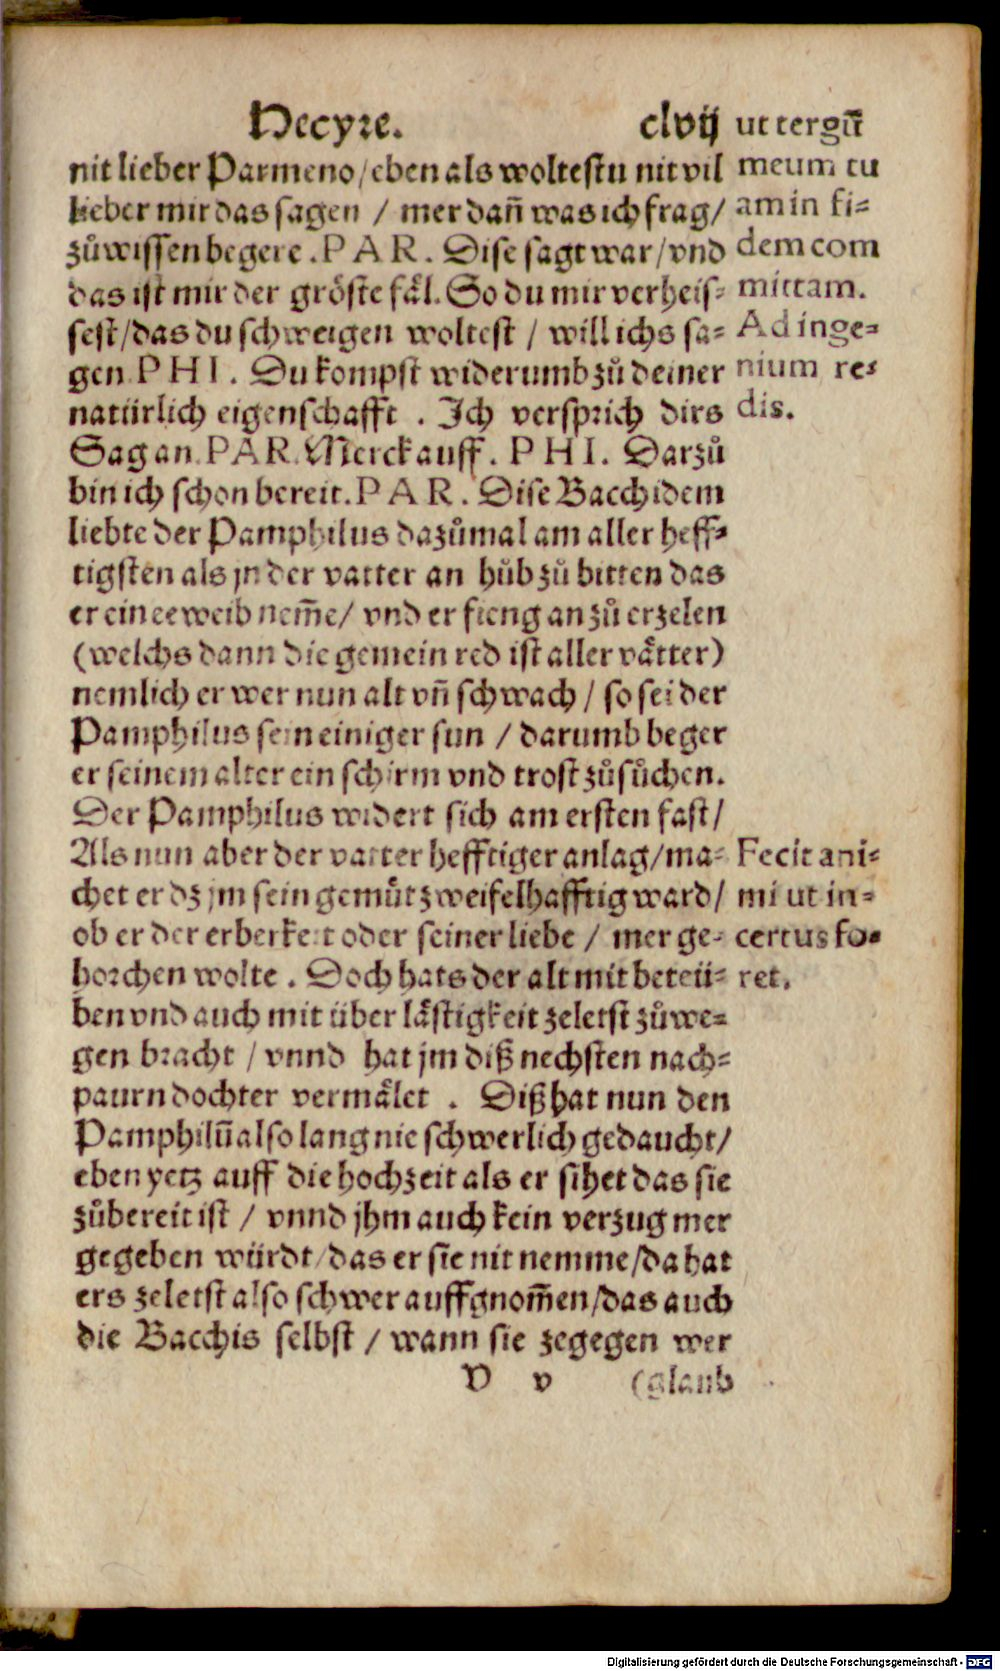 Hecyre. clvij
nit lieber Parmeno / eben als woltestu nit vil
lieber mir das sagen / mer dañ was ich frag /
zů wissen begere. PAR. Dise sagt war / vnd
das ist mir der gröste fäl. So du mir verheis-
sest / das du schweigen woltest / will ichs sa-
gen. PHI. Du kompst widerumb zů deiner
natürlich eigenschafft . Ich versprich dirs
Sag an. PAR. Merck auff. PHI. Darzů
bin ich schon bereit. PAR. Dise Bacchidem
liebte der Pamphilus dazůmal am aller heff-
tigsten als jn der vatter an hůb zů bitten das
er ein eeweib nem̃e / vnd er fieng an zů erzelen
(welchs dann die gemein red ist aller vätter)
nemlich er wer nun alt vñ schwach / so sei der
Pamphilus sein einiger sun / darumb beger
er seinem alter ein schirm vnd trost zůsůchen.
Der Pamphilus widert sich am ersten fast /
Als nun aber der vatter hefftiger anlag / ma-
chet er dz jm sein gemüt zweifelhafftig ward /
ob er der erberkeit oder seiner liebe / mer ge-
horchen wolte . Doch hats der alt mit beteü-
ben vnd auch mit über lästigkeit zeletst zůwe-
gen bracht / vnnd hat jm diß nechsten nach-
paurn dochter vermälet . Diß hat nun den
Pamphilũ also lang nie schwerlich gedaucht /
eben yetz auff die hochzeit als er sihet das sie
zůbereit ist / vnnd jhm auch kein verzug mer
gegeben würdt / das er sie nit nemme / da hat
ers zeletst also schwer auffgnom̃en / das auch
die Bacchis selbst / wann sie zegegen wer
V v (glaub
ut tergũ
meum tu
am in fi-
dem com
mittam.
Ad inge-
nium re-
dis.
Fecit ani-
mi ut in-
certus fo-
ret.
Digitalisierung gefördert durch die Deutsche Forschungsgemeinschaft - DFG